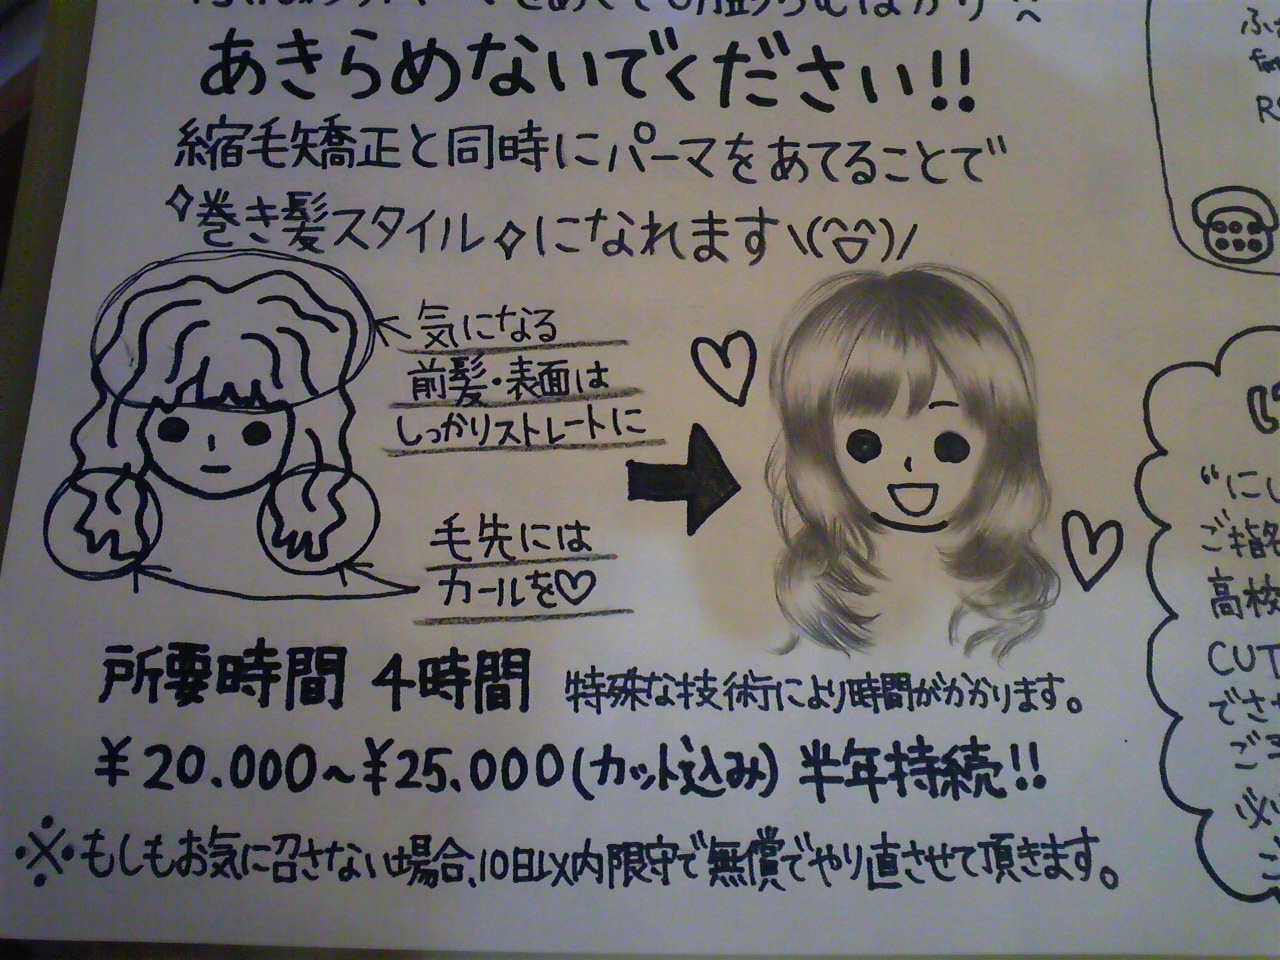 あきらめないでください!!
縮毛矯正と同時にパーマをあてることで
巻き髪スタイルになれます\(^▽^)/
気になる
前髪・表面は
しっかりストレートに
毛先には
カールを♡
所要時間 4時間 特殊な技術により時間がかかります。
¥20.000~¥25.000(カット込み) 半年持続!!
※もしもお気に召さない場合、10日以内限守で無償でやり直させて頂きます。
"にし
ご指名
高校
CUT
でさ
ご予
必